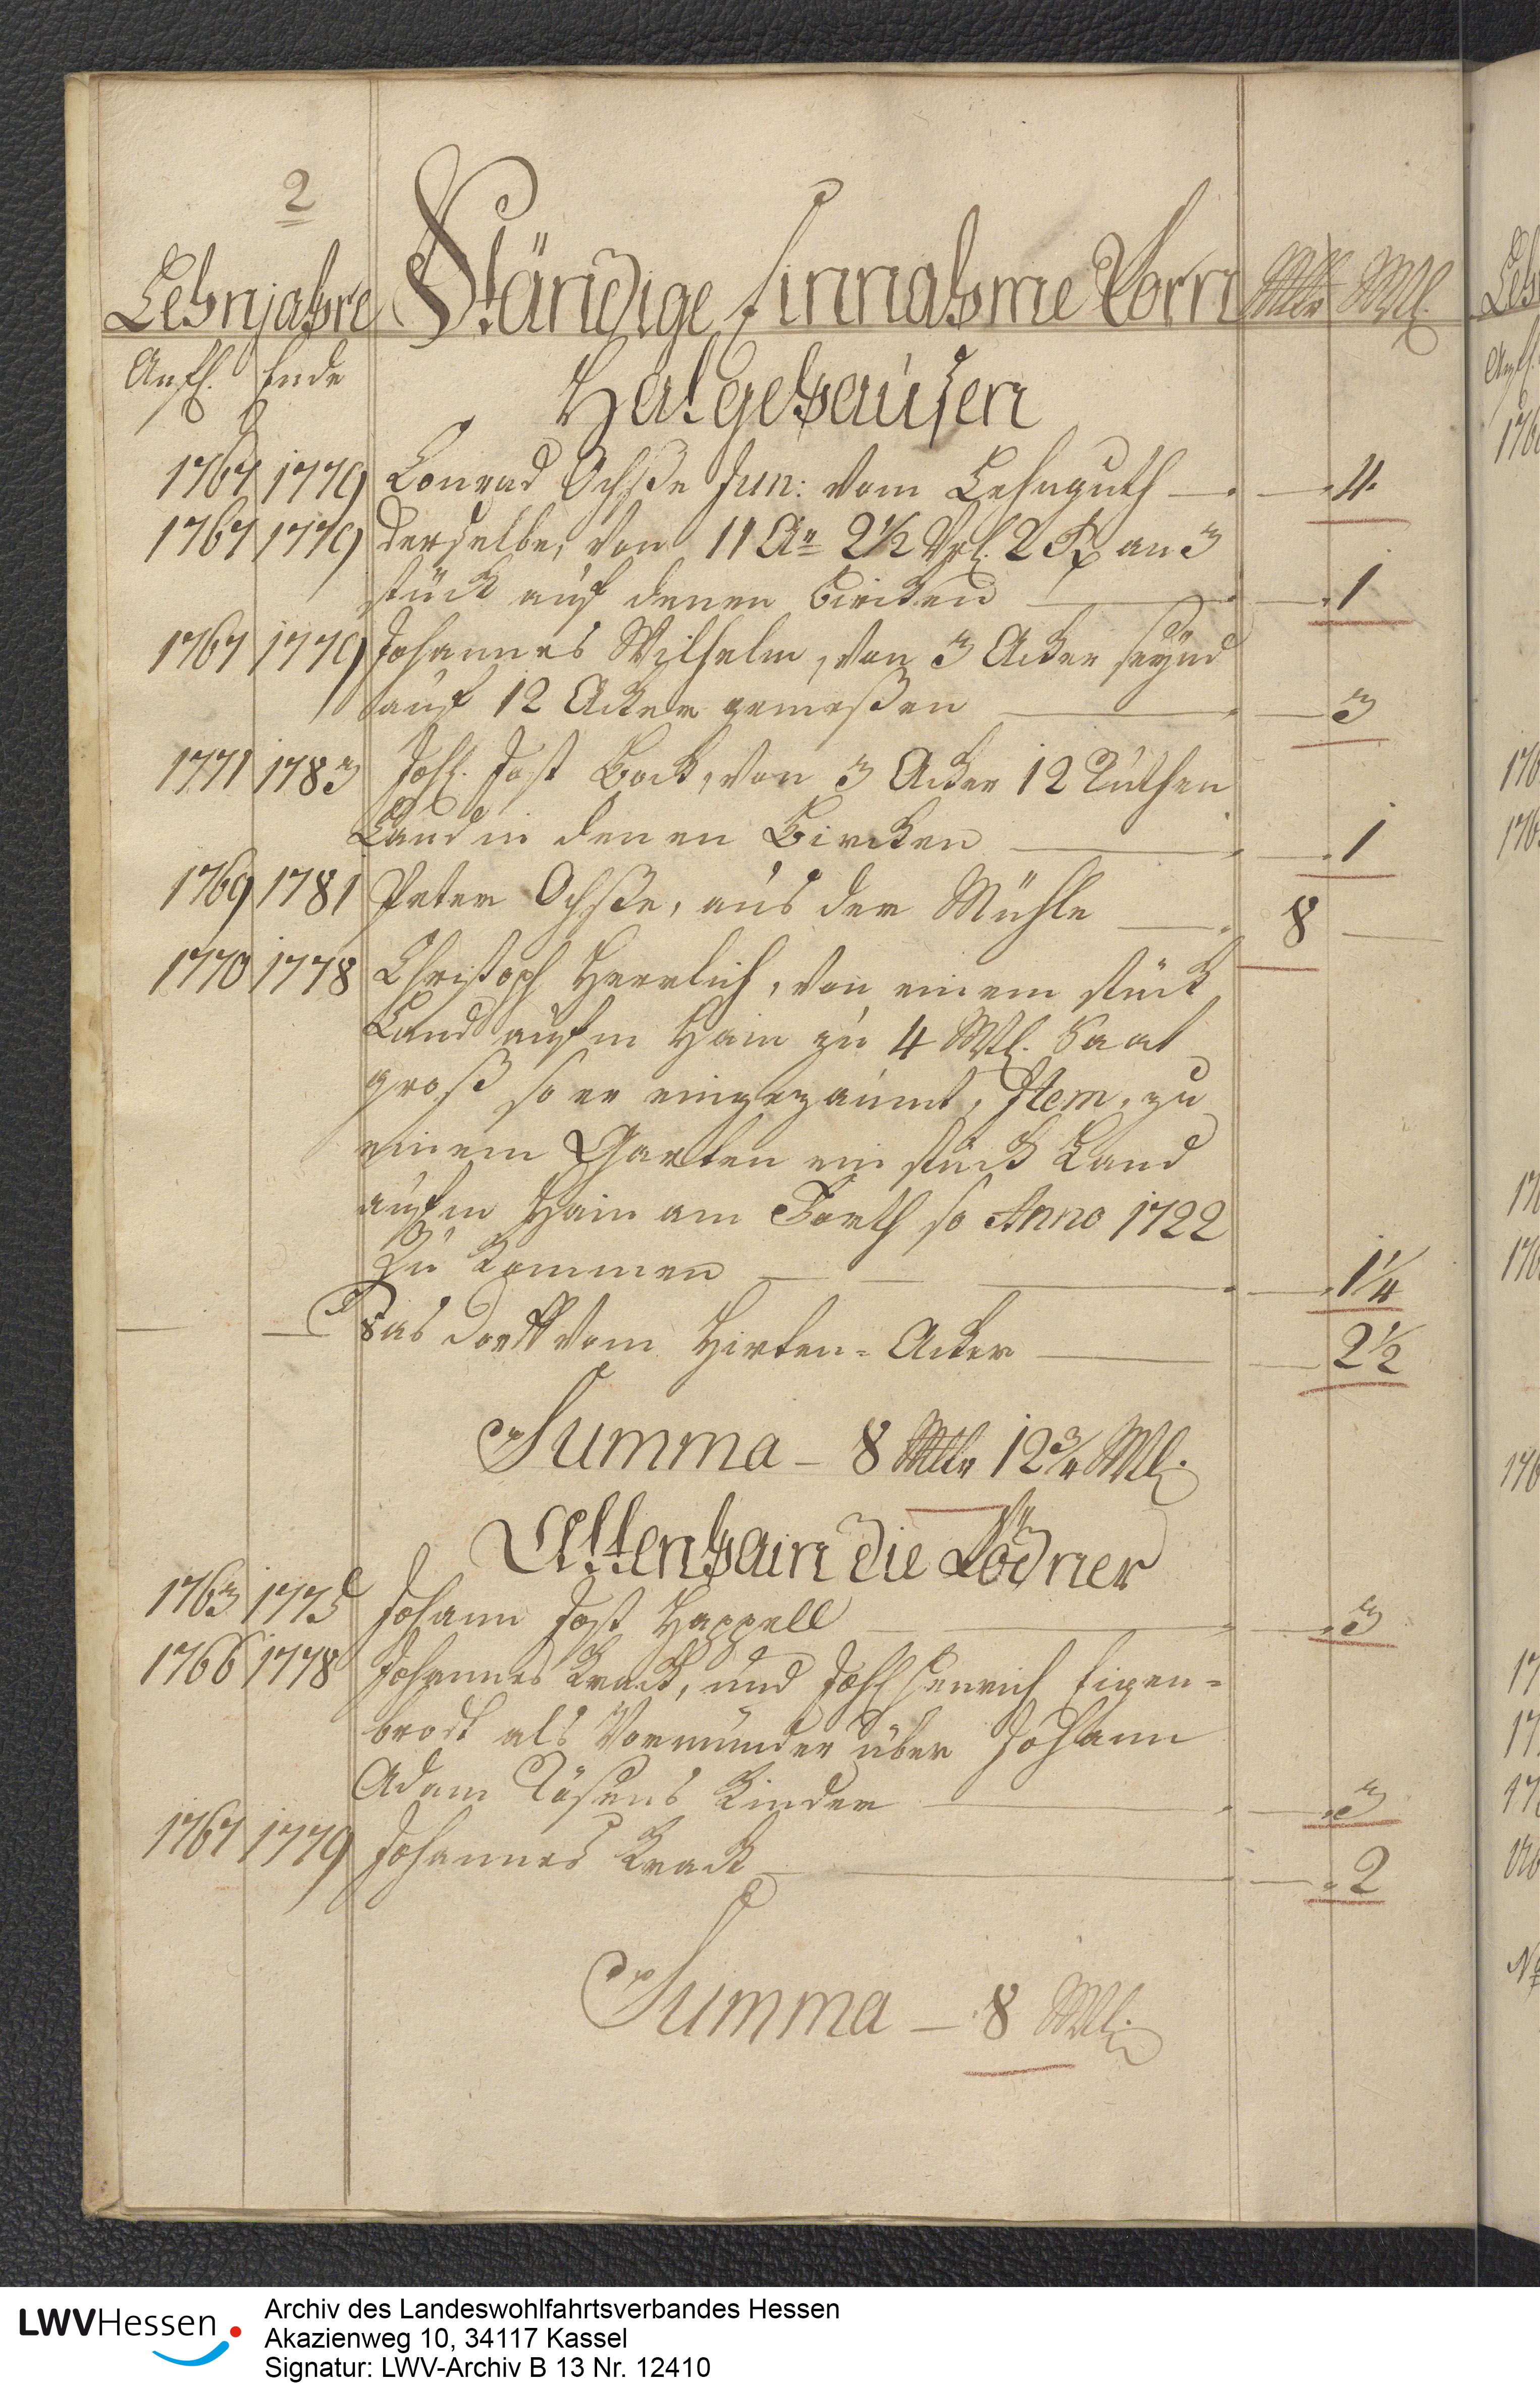 2
Lehnjahre Ständige Einnahme Korn Mltr Mtl.
Anf. Ende Halgehausen
1767 1779 Conrad Ochße Jun: vom Lehnguth 4.
1767 1779 Derselbe, von 11 Ar 2½ Vrl. 2 R an 3
stück auf denen Bircken 1
1767 1779 Johannes Wilhelm, von 3 Acker seynd
auf 12 Acker gemeßen 3
1771 1783 Joh. Jost Bock, von 3 Acker 12 Ruthen
Land in denen Bircken 1
1769 1781 Peter Ochße, aus der Mühle 8
1770 1778 Christoph Herrlich, von einem stück
Land aufm Hain zu 4 Mtl. Saat
groß so er eingezäunt, Item, zu
einem Garten ein stück Land
aufm Hain am Forth so Anno 1722
zu kommen 1¼
Das Dorff vom Hirten-Acker 2½
Summa - 8 Mltr 12¾ Mtl.
Altenhain die Lödner
1763 1775 Johann Jost Happell 3
1766 1778 Johannes Krack, und Joh Henrich Eigen-
brodt als Vormünder über Johann
Adam Rösens Kinder 3
1767 1779 Johannes Krack 2
Summa - 8 Mtl.
LWVHessen
Archiv des Landeswohlfahrtsverbandes Hessen
Akazienweg 10, 34117 Kassel
Signatur: LWV-Archiv B 13 Nr. 12410